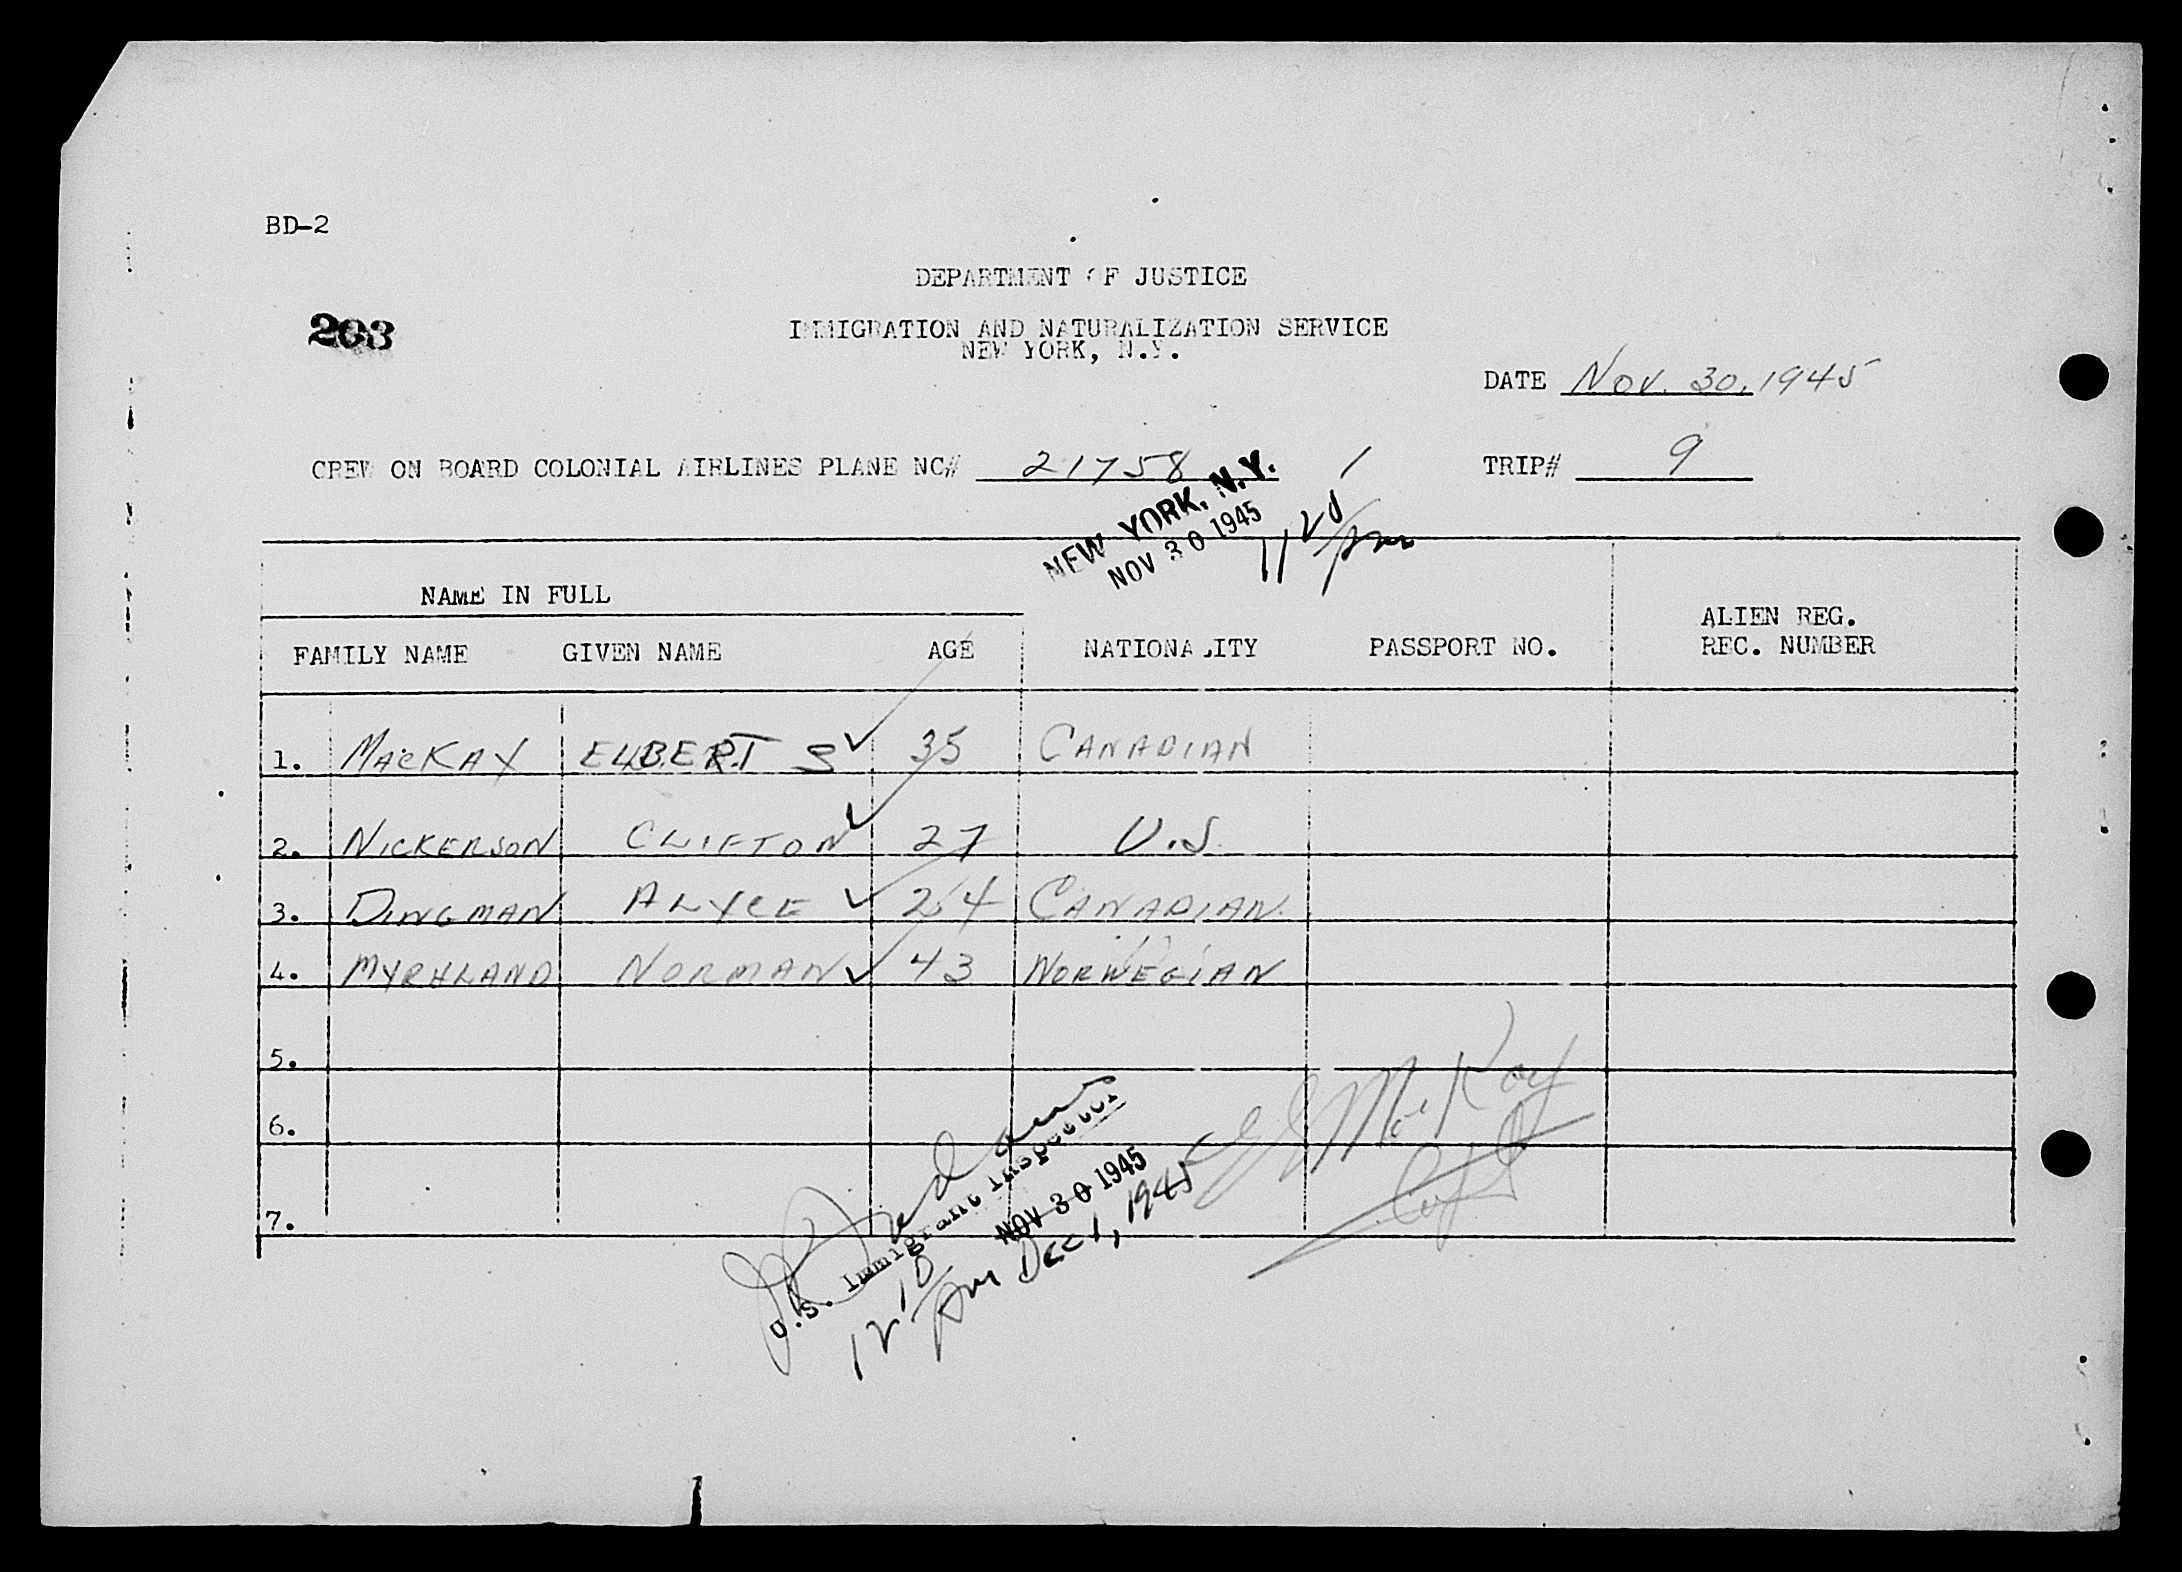 BD-2
DEPARTMENT OF JUSTICE
203
IMMIGRATION AND NATURALIZATION SERVICE
NEW YORK, N.Y.
DATE Nov. 30, 1945
CREW ON BOARD COLONIAL AIRLINES PLANE NC# 21758 1 TRIP# 9
NEW YORK, N.Y.
NOV 30 1945
11 20/pm
NAME IN FULL
FAMILY NAME GIVEN NAME AGE NATIONALITY PASSPORT NO. ALIEN REG. REC. NUMBER
1. MacKAY ELBERT S 35 CANADIAN
2. NICKERSON CLIFTON 27 U.S.
3. DINGMAN ALYCE 24 CANADIAN
4. MYRHLAND NORMAN 43 NORWEGIAN
5.
6.
7.
MacKay
Capt
U.S. Immigrant Inspector
NOV 30 1945
12 10/am Dec 1, 1945